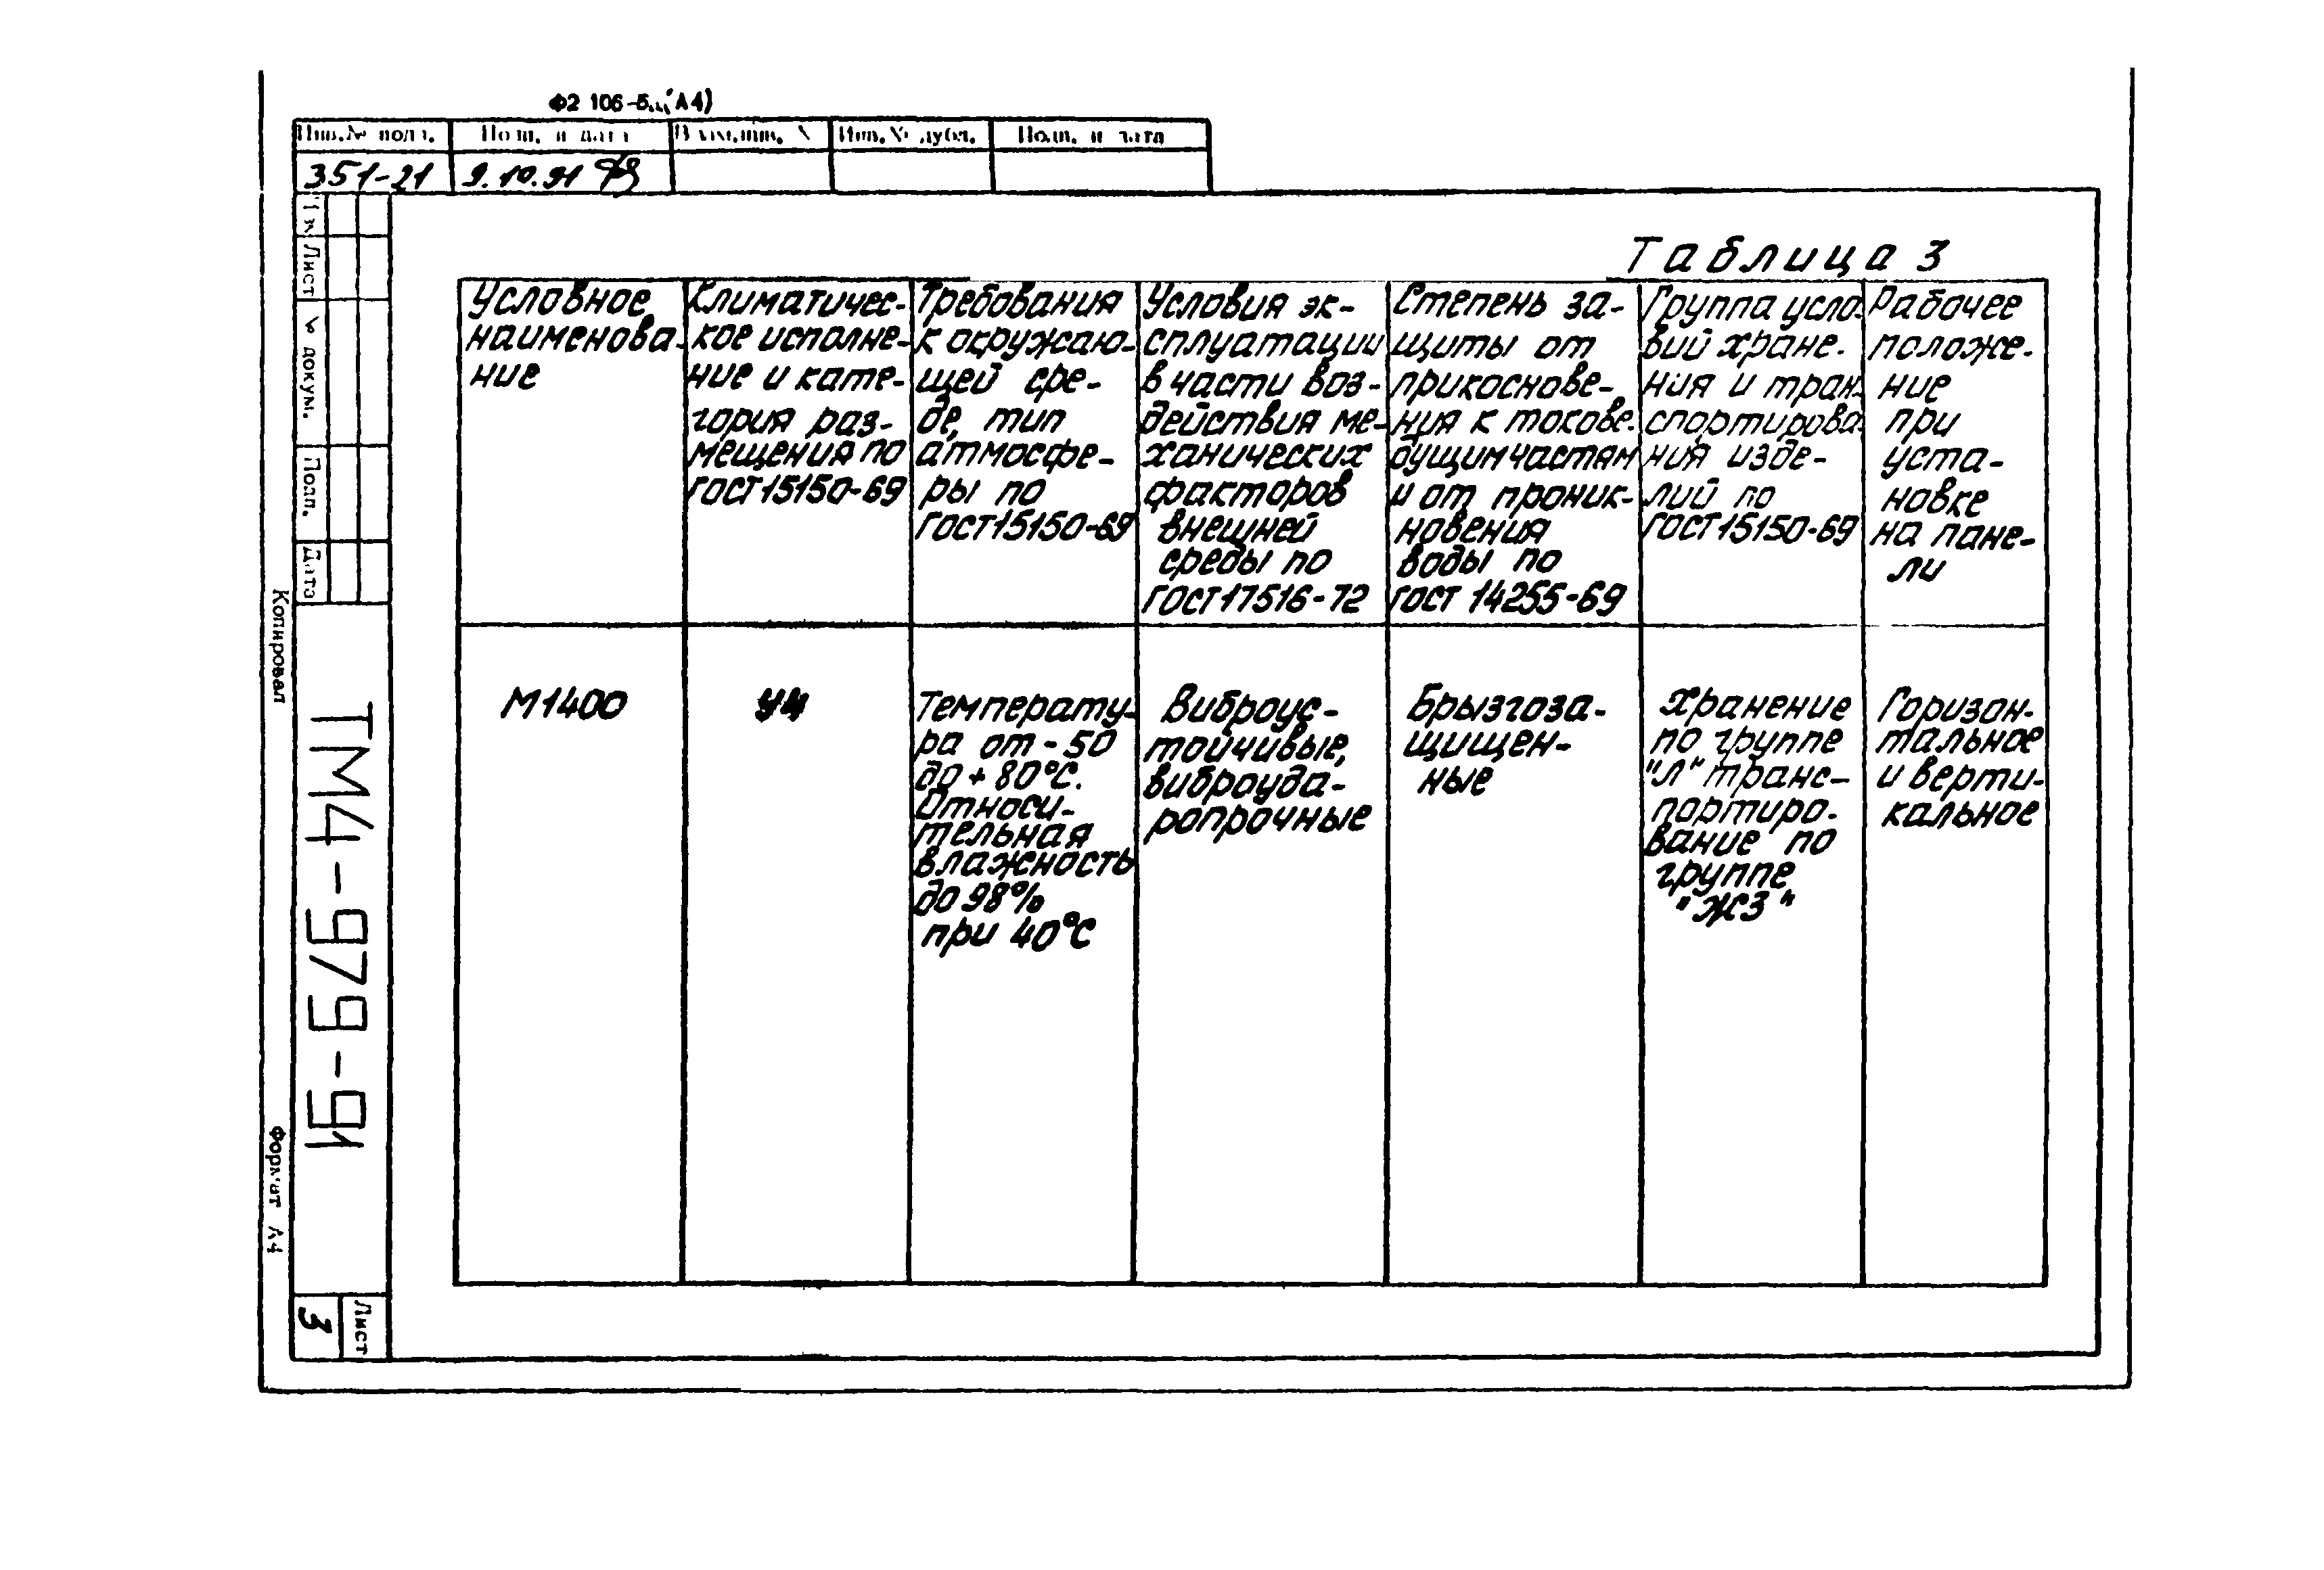 Ф2 106-5 (А4)
Инв.№ подл.
Подп. и дата
Взам.инв. №
Инв.№ дубл.
Подп. и дата
351-21
9.10.91
Таблица 3
Условное
наименова-
ние
Климатичес-
кое исполне-
ние и кате-
гория раз-
мещения по
ГОСТ15150-69
Требования
к окружаю-
щей сре-
де, тип
атмосфе-
ры по
ГОСТ15150-69
Условия эк-
сплуатации
в части воз-
действия ме-
ханических
факторов
внешней
среды по
ГОСТ17516-72
Степень за-
щиты от
прикоснове-
ния к токове-
дущим частям
и от проник-
новения
воды по
ГОСТ 14255-69
Группа усло-
вий хране-
ния и тран-
спортирова-
ния изде-
лий по
ГОСТ15150-69
Рабочее
положе-
ние
при
уста-
новке
на пане-
ли
М1400
У4
Температу-
ра от -50
до + 80°С.
Относи-
тельная
влажность
до 98%
при 40°С
Виброус-
тойчивые,
виброуда-
ропрочные
Брызгоза-
щищен-
ные
Хранение
по группе
"Л" транс-
портиро-
вание по
группе
"Ж3"
Горизон-
тальное
и верти-
кальное
Лист
№ докум.
Подп.
Дата
ТМ4-979-91
Лист
3
Копировал
Формат А4